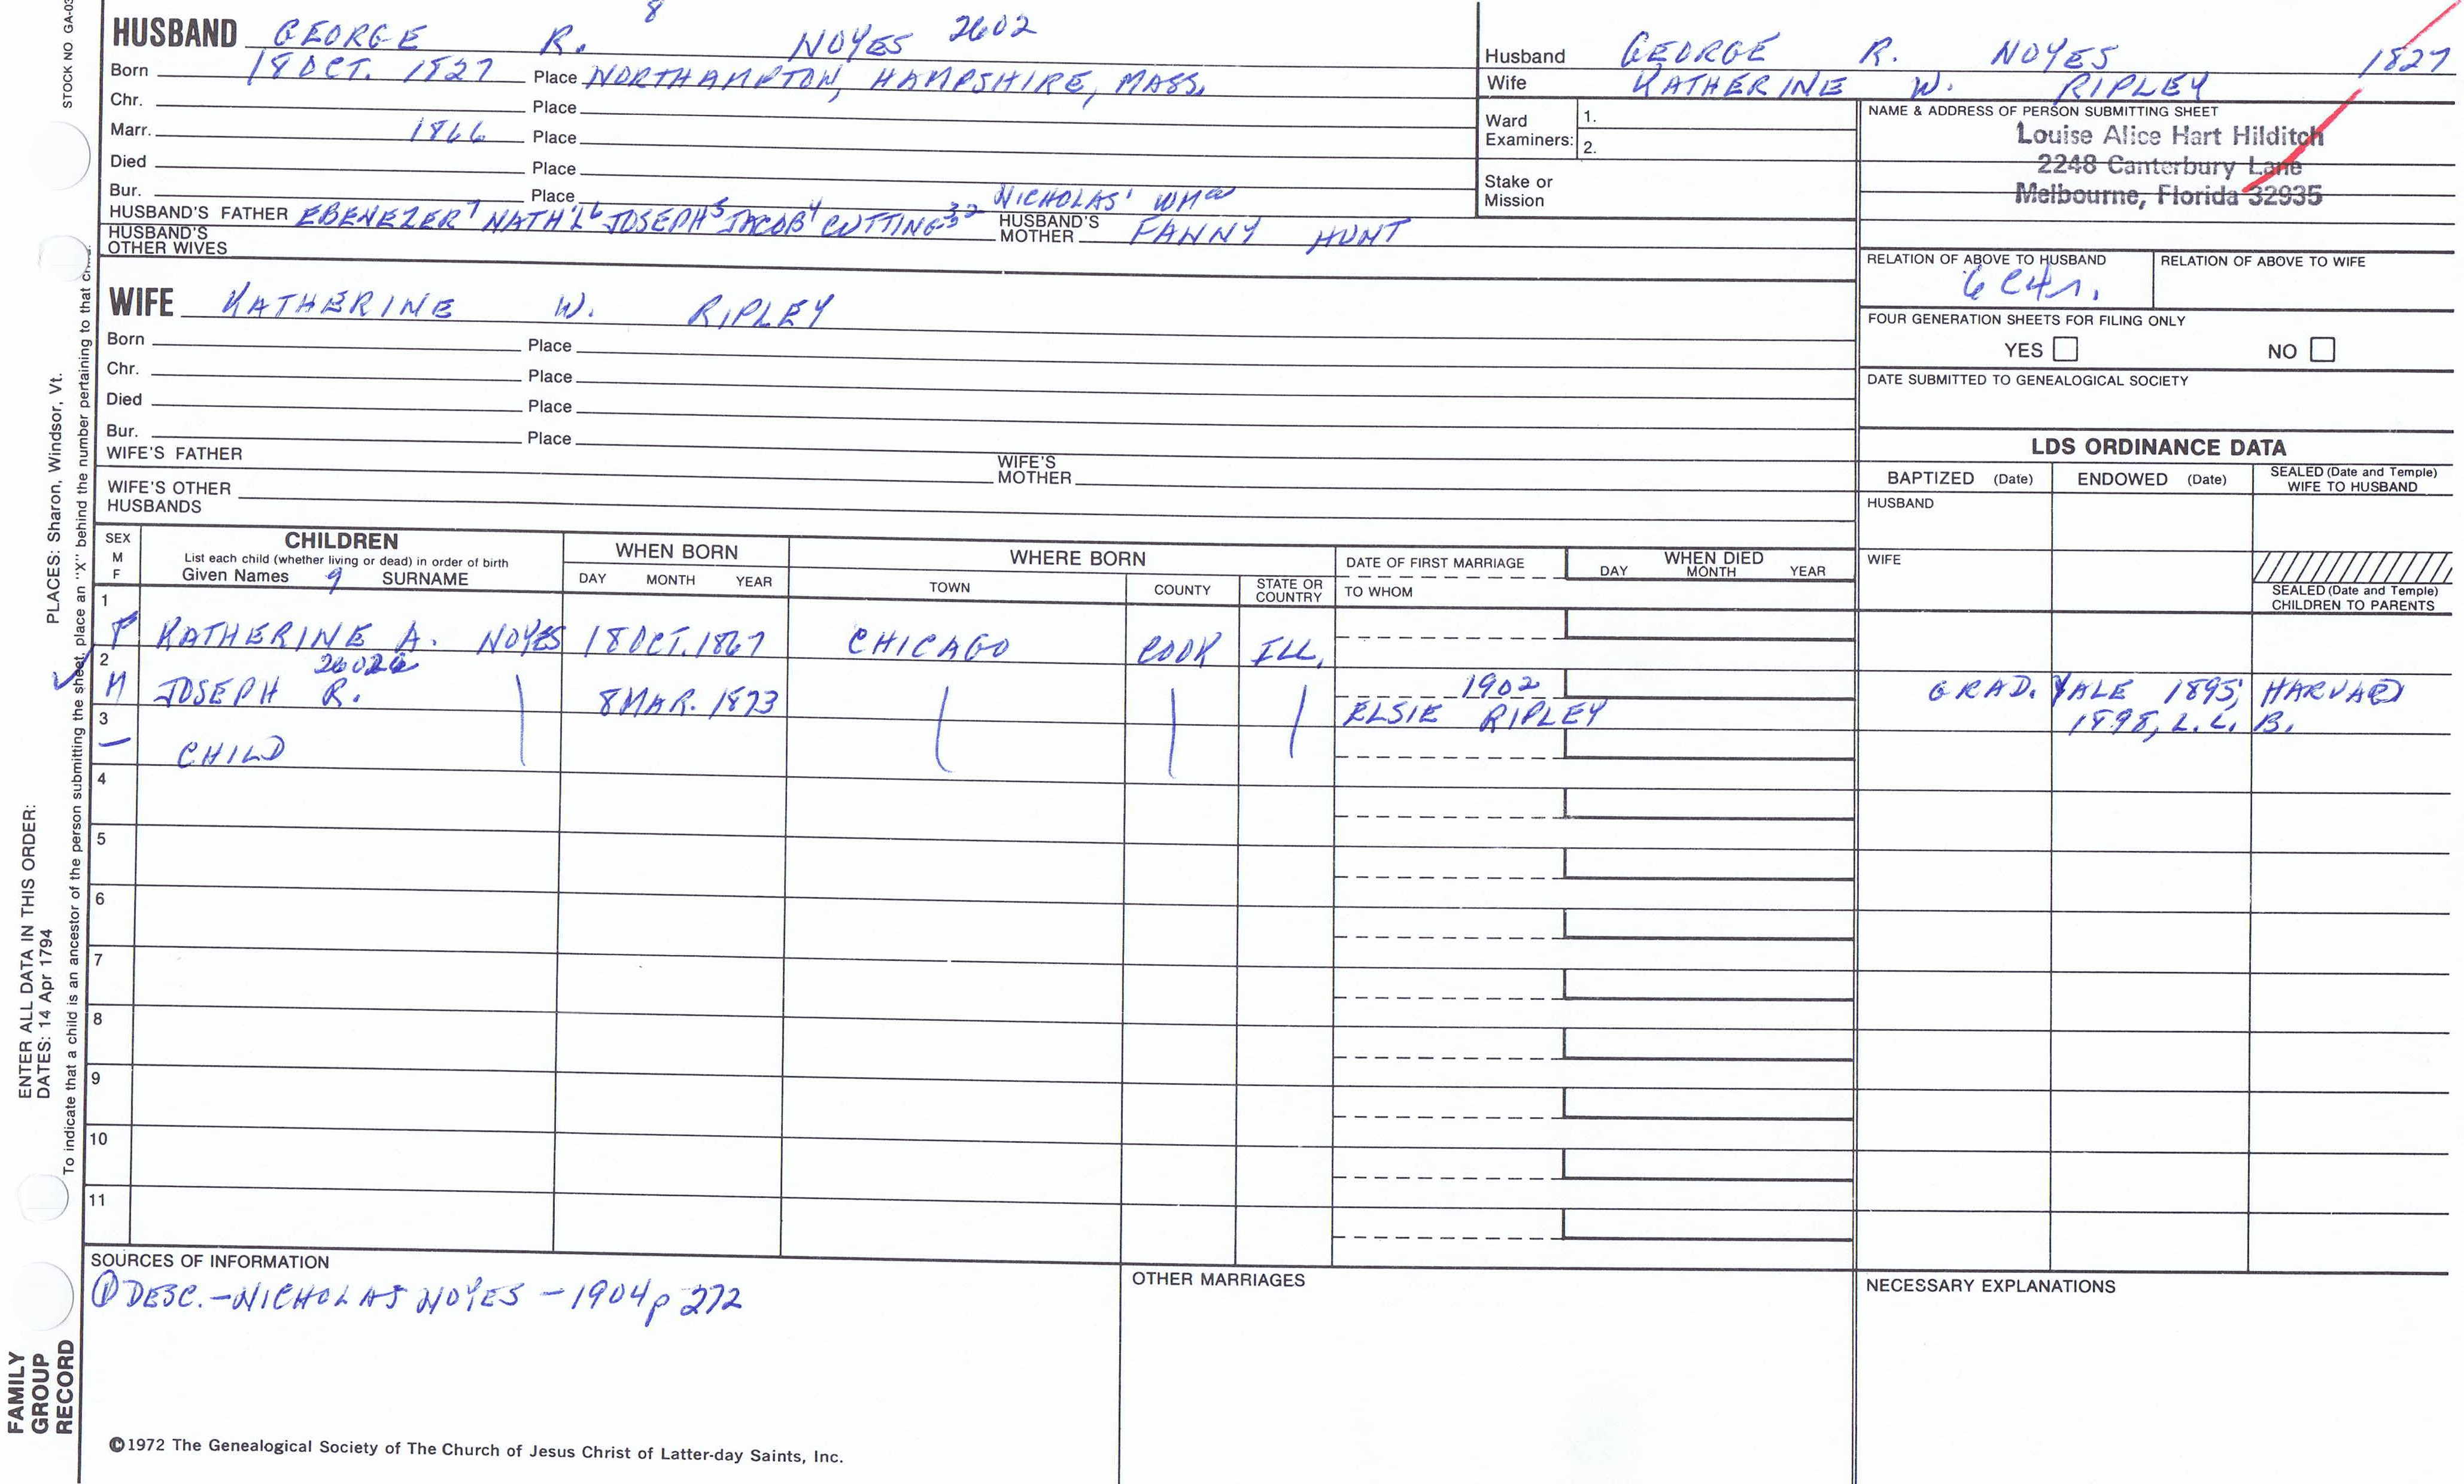 STOCK NO GA-03
HUSBAND GEORGE R. 8 NOYES 2602
Born 18 OCT. 1827 Place NORTHAMPTON, HAMPSHIRE, MASS.
Chr. Place
Marr. 1866 Place
Died Place
Bur. Place
HUSBAND'S FATHER EBENEZER7 NATH'L6 JOSEPH5 JACOB4 CUTTING3 2 NICHOLAS' Wm
HUSBAND'S MOTHER FANNY HUNT
HUSBAND'S OTHER WIVES
Husband GEORGE R. NOYES 1827
Wife KATHERINE W. RIPLEY
Ward Examiners: 1.
2.
Stake or Mission
NAME & ADDRESS OF PERSON SUBMITTING SHEET
Louise Alice Hart Hilditch
2248 Canterbury Lane
Melbourne, Florida 32935
RELATION OF ABOVE TO HUSBAND RELATION OF ABOVE TO WIFE
FOUR GENERATION SHEETS FOR FILING ONLY
YES NO
DATE SUBMITTED TO GENEALOGICAL SOCIETY
WIFE KATHERINE W. RIPLEY
Born Place
Chr. Place
Died Place
Bur. Place
WIFE'S FATHER WIFE'S MOTHER
WIFE'S OTHER HUSBANDS
LDS ORDINANCE DATA
BAPTIZED (Date) ENDOWED (Date) SEALED (Date and Temple) WIFE TO HUSBAND
HUSBAND
WIFE
SEALED (Date and Temple) CHILDREN TO PARENTS
SEX M F
CHILDREN
List each child (whether living or dead) in order of birth
Given Names 9 SURNAME
WHEN BORN
DAY MONTH YEAR
WHERE BORN
TOWN COUNTY STATE OR COUNTRY
DATE OF FIRST MARRIAGE
TO WHOM
WHEN DIED
DAY MONTH YEAR
1
F KATHERINE A. NOYES 18 OCT. 1867 CHICAGO COOK ILL.
2 26026
M JOSEPH R. 8 MAR. 1873 1902
ELSIE RIPLEY
GRAD. YALE 1895, HARVARD
1898, L. L. B.
3
— CHILD
4
5
6
7
8
9
10
11
SOURCES OF INFORMATION
① DESC. - NICHOLAS NOYES - 1904 p 272
OTHER MARRIAGES
NECESSARY EXPLANATIONS
©1972 The Genealogical Society of The Church of Jesus Christ of Latter-day Saints, Inc.
FAMILY
GROUP
RECORD
ENTER ALL DATA IN THIS ORDER:
DATES: 14 Apr 1794
PLACES: Sharon, Windsor, Vt.
To indicate that a child is an ancestor of the person submitting the sheet, place an "X" behind the number pertaining to that